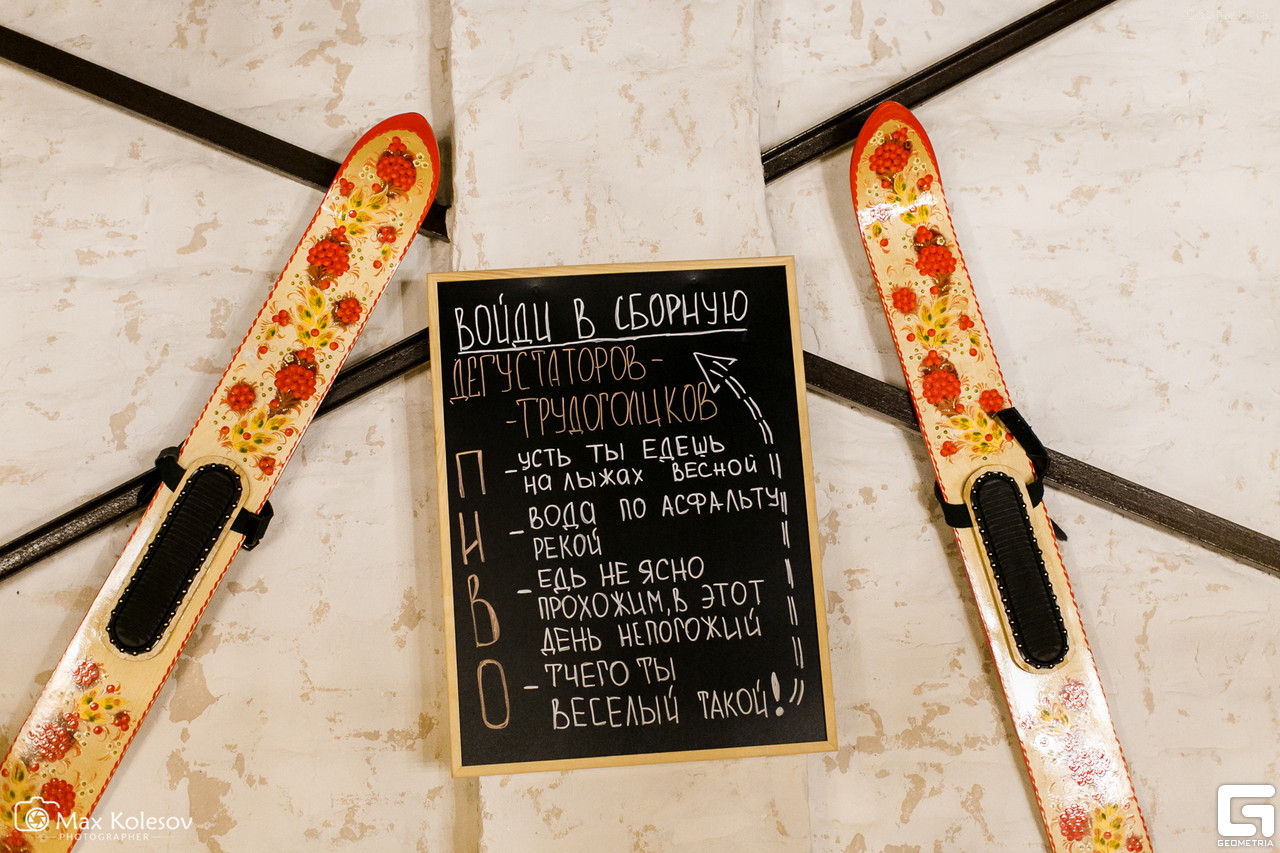 ВОЙДИ В СБОРНУЮ
ДЕГУСТАТОРОВ-
-ТРУДОГОЛИКОВ
П -УСТЬ ТЫ ЕДЕШЬ
НА ЛЫЖАХ ВЕСНОЙ
И -ВОДА ПО АСФАЛЬТУ
РЕКОЙ
В -ЕДЬ НЕ ЯСНО
ПРОХОЖИМ, В ЭТОТ
ДЕНЬ НЕПОГОЖИЙ
О -ТЧЕГО ТЫ
ВЕСЕЛЫЙ ТАКОЙ!
Max Kolesov
PHOTOGRAPHER
GEOMETRIA